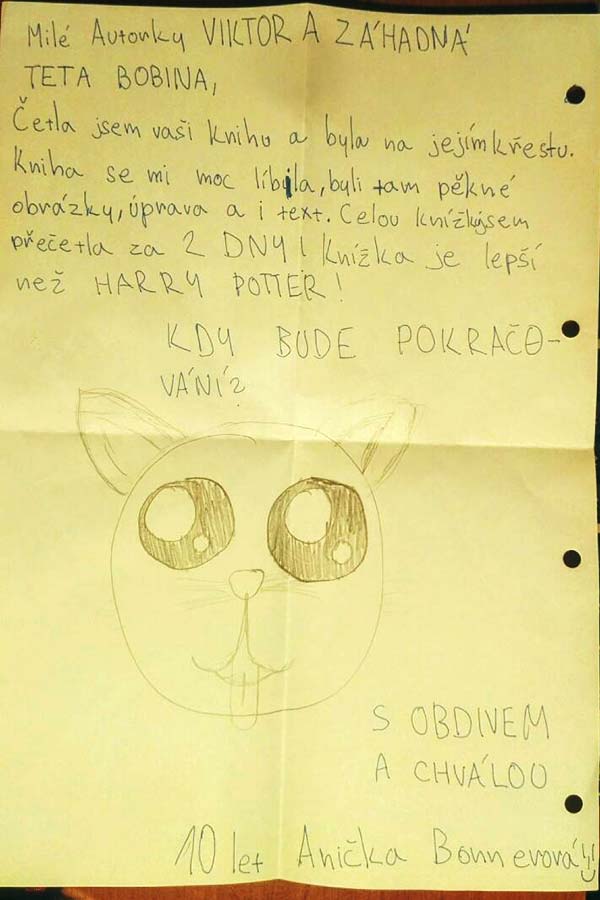 Milé Autorky VIKTOR A ZÁHADNÁ
TETA BOBINA,
Četla jsem vaši knihu a byla na jejím křestu.
Kniha se mi moc líbila, byli tam pěkné
obrázky, úprava a i text. Celou knížkujsem
přečetla za 2 DNY! Knížka je lepší
než HARRY POTTER!
KDY BUDE POKRAČO-
VÁNÍ?
S OBDIVEM
A CHVÁLOU
10 let Anička Bonnerová!